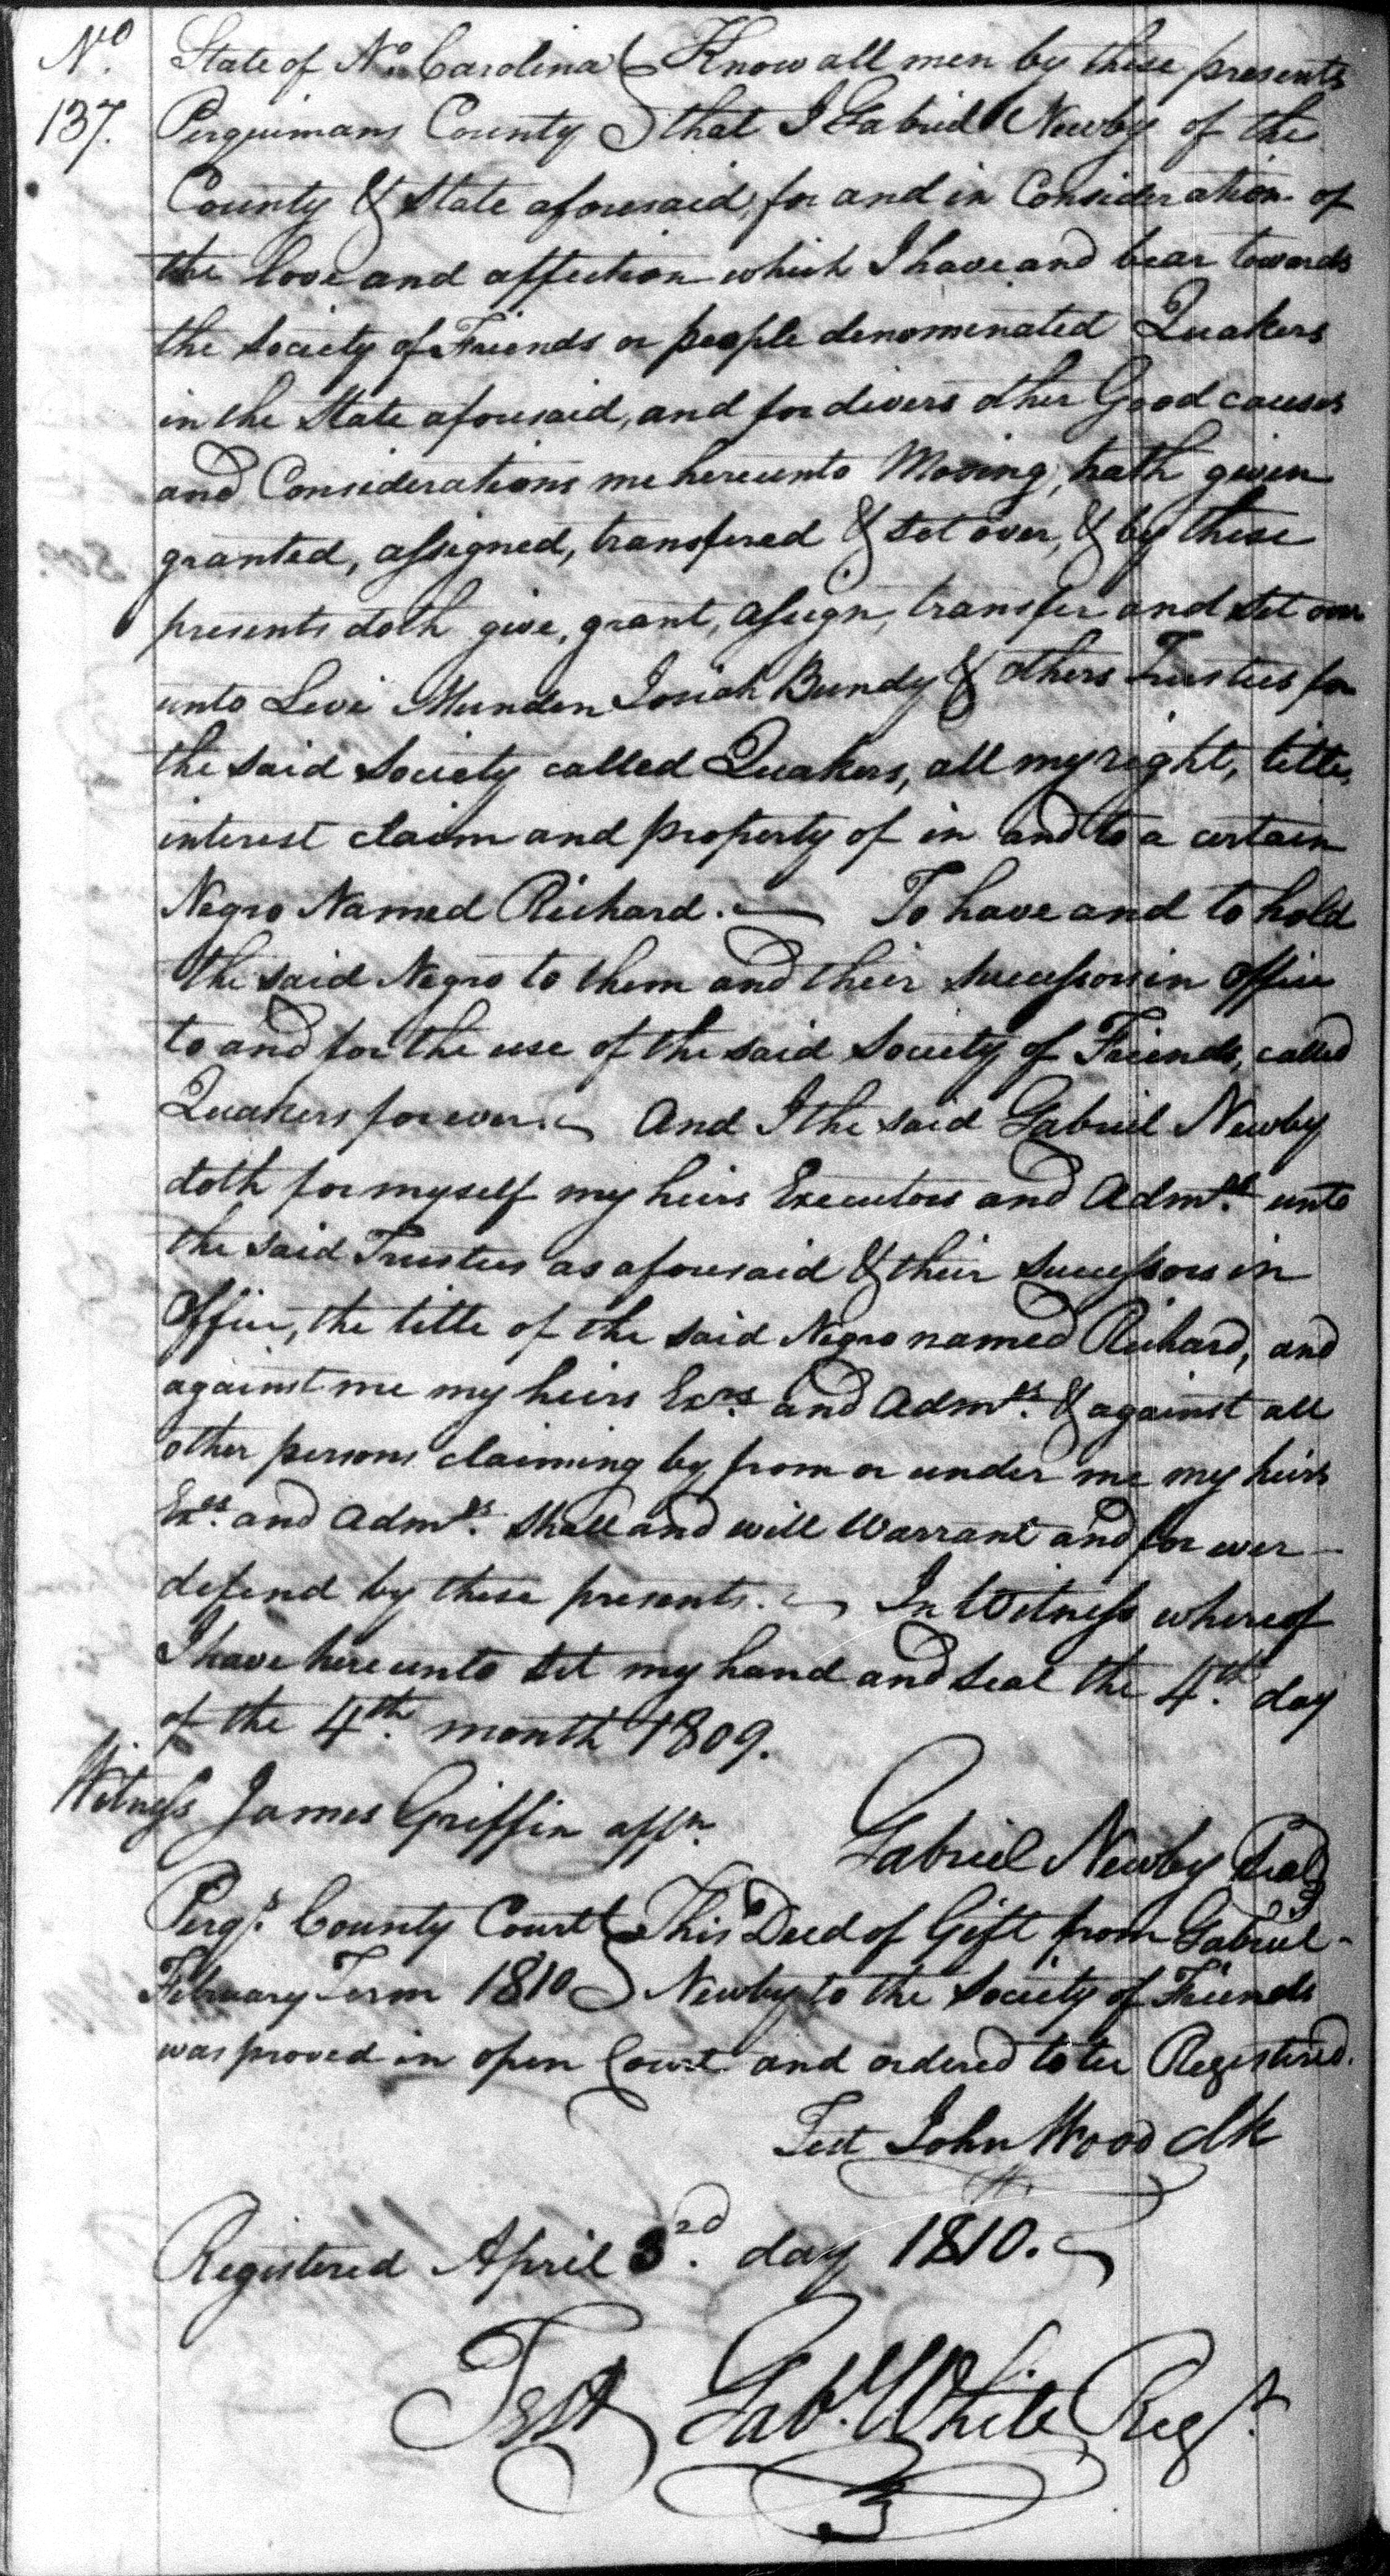 No. State of No. Carolina Know all men by these presents
137. Perquimans County that I Gabriel Newby of the
County & State aforesaid, for and in Consideration of
the love and affection which I have and bear towards
the Society of Friends or people denominated Quakers
in the State aforesaid, and for divers other Good causes
and Considerations me hereunto Moving, hath given
granted, assigned, transfered & set over, & by these
presents doth give, grant, assign, transfer and set over
unto Levi Munden Josiah Bundy & others Trustees for
the said Society called Quakers, all my right, title,
interest claim and property of in and to a certain
Negro Named Richard. — To have and to hold
the said Negro to them and their successors in Office
to and for the use of the said Society of Friends, called
Quakers for ever. And I the said Gabriel Newby
doth for myself my heirs Executors and Admrs. unto
the said Trustees as aforesaid & their successors in
Office, the title of the said Negro named Richard, and
against me my heirs Exrs. and Admrs. & against all
other persons claiming by from or under me my heirs
Exrs. and Admrs. shall and will Warrant and for ever
defend by these presents. In Witness whereof
I have hereunto set my hand and seal the 4th. day
of the 4th. month 1809.
Witness James Griffin affn.
Gabriel Newby Seal
Perqs. County Court This Deed of Gift from Gabriel
February Term 1810 Newby to the Society of Friends
was proved in open Court and ordered to be Registered.
Test John Wood Clk
Registered April 3rd. day 1810.
Test Gab. White Regr.